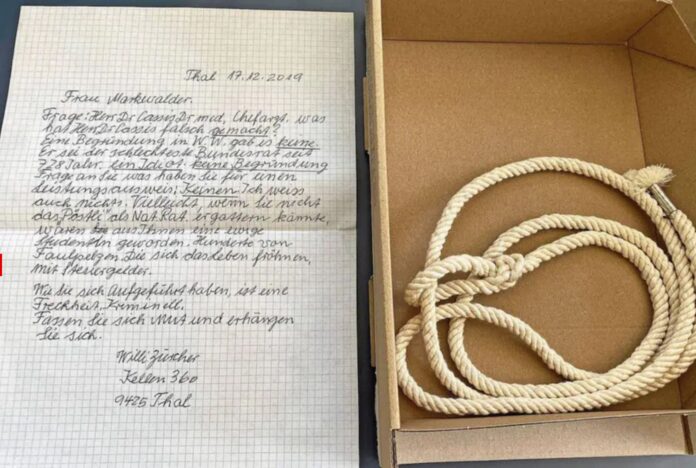 Thal 17.12.2019
Frau Markwalder.
Frage: Herr Dr Cassis Dr med, Chefarzt. was
hat Herr Dr Cassis falsch gemacht?
Eine Begründung in W.W. gab es keine.
Er sei der schlechteste Bundesrat seit
Jater. ein Idiot. keine Begründung
Frage an Sie was haben Sie für einen
Leistungsausweis; Keinen. Ich weiss
auch nichts. Vielleicht, wenn Sie nicht
das "Pöstli" als Nat. Rat. ergattern könnte,
wären aus Ihnen eine ewige
Studentin geworden. Hunderte von
Faulpelzen. Die sich das Leben fröhnen,
mit Steuergelder.
Wie Sie sich aufgeführt haben, ist eine
Frechheit, Kriminell.
Fassen Sie sich Mut und erhängen
Sie sich.
Willi Zürcher
Kellen 360
9425 Thal